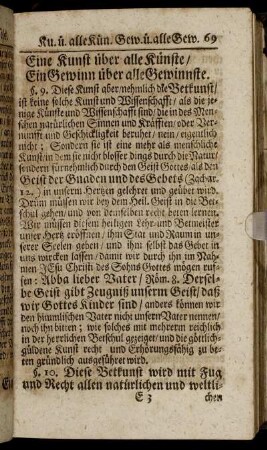 Ku. ü. alle Kün. Gew. ü. alle Gew. 69
Eine Kunst über alle Künste/
Ein Gewinn über alle Gewinnste.
§. 9. Diese Kunst aber/nehmlich die Betkunst/
ist keine solche Kunst und Wissenschafft/ als die je-
nige Künste und Wissenschafft sind/ die in des Men-
schen natürlichen Sinnen und Kräfften/ oder Ver-
nunfft und Geschickligkeit beruhet/ nein/ eigentlich
nicht; Sondern sie ist eine mehr als menschliche
Kunst/in dem sie nicht blosser dings durch die Natur/
sondern fürnehmlich durch den Geist Gottes/ als den
Geist der Gnaden und des Gebets (Zachar.
12.) in unserm Hertzen gelehret und geübet wird.
Drum müssen wir bey dem Heil. Geist in die Bet-
schul gehen/ und von demselben recht beten lernen.
Wir müssen diesem heiligen Lehr- und Betmeister
unser Hertz eröffnen/ ihm Statt und Raum in un-
serer Seelen geben/ und ihn selbst das Gebet in
uns wircken lassen/ damit wir durch ihn im Nah-
men JEsu Christi des Sohns Gottes mögen ruf-
fen: Abba lieber Vater/ Röm. 8. Dersel-
be Geist gibt Zeugniß unserm Geist/ daß
wir Gottes Kinder sind/ anders können wir
den himmlischen Vater nicht unsern Vater nennen/
noch ihn bitten; wie solches mit mehrern reichlich
in der herrlichen Betschul gezeiget/ und die göttlich-
güldene Kunst recht und Erhörungsfähig zu be-
ten gründlich ausgeführet wird.
§. 10. Diese Betkunst wird mit Fug
und Recht allen natürlichen und weltli-
E 3 chen